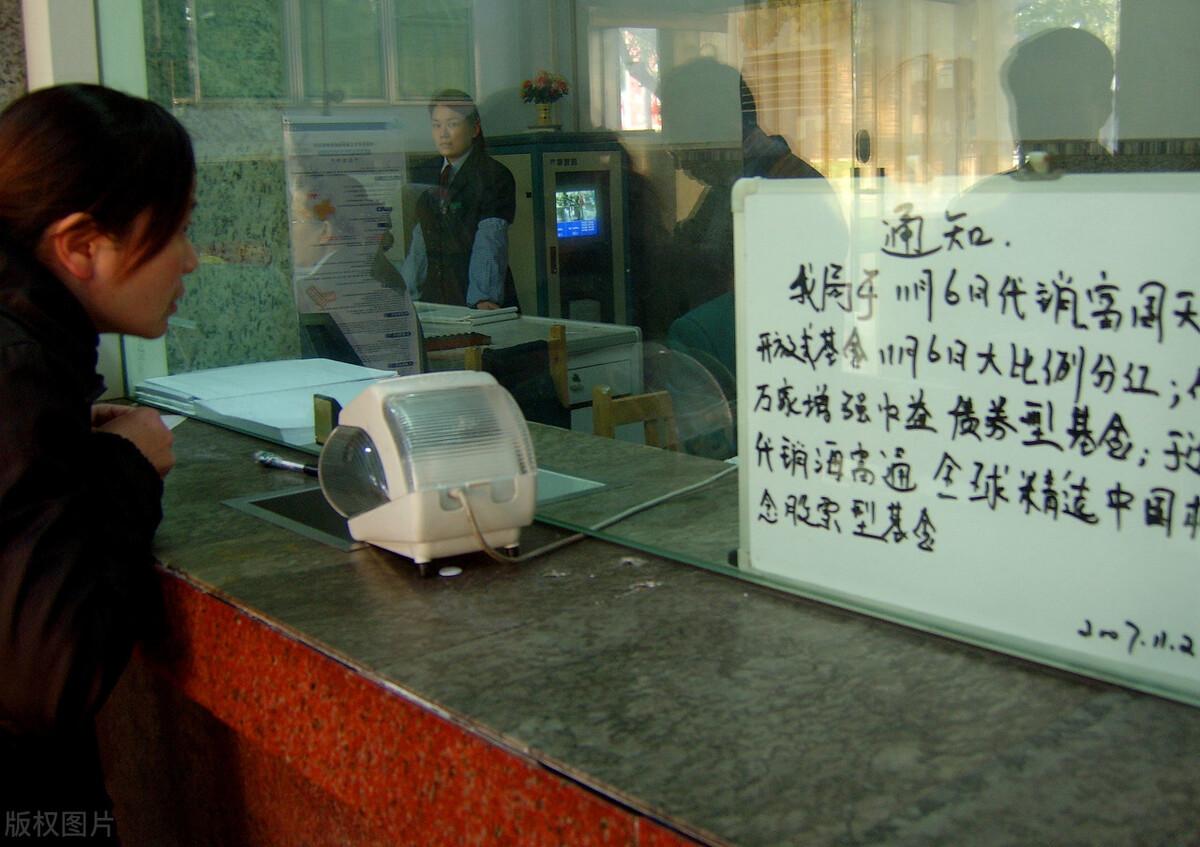 通知.
我局于11月6日代销富国天
开放式基金11月6日大比例分红;
万家增强收益债券型基金;
代销海富通全球精选中国
念股票型基金
2007.11.2
版权图片